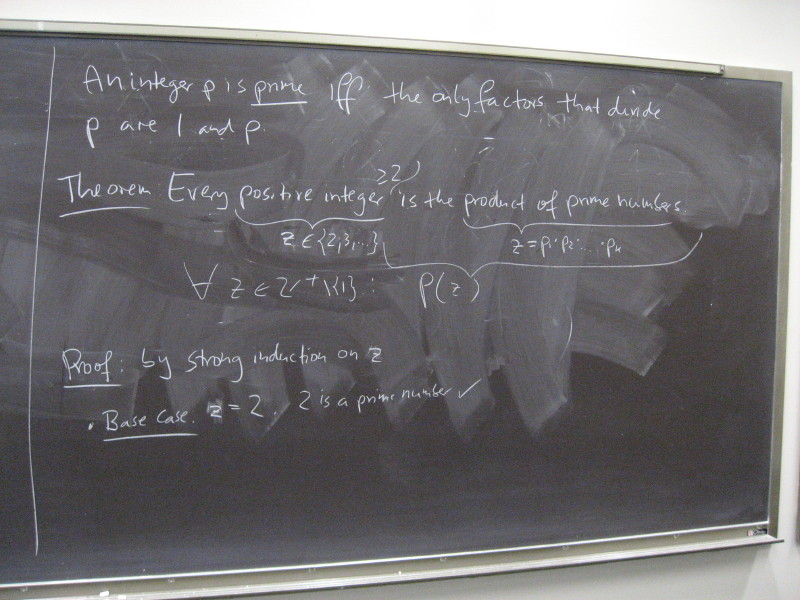 An integer p is prime iff the only factors that divide
p are 1 and p.
≥2
Theorem Every positive integer is the product of prime numbers
z ∈ {2,3,...} z = p₁·p₂·...·pₖ
∀ z ∈ Z⁺\{1} : P(z)
Proof: by strong induction on z
• Base Case. z = 2. 2 is a prime number ✓